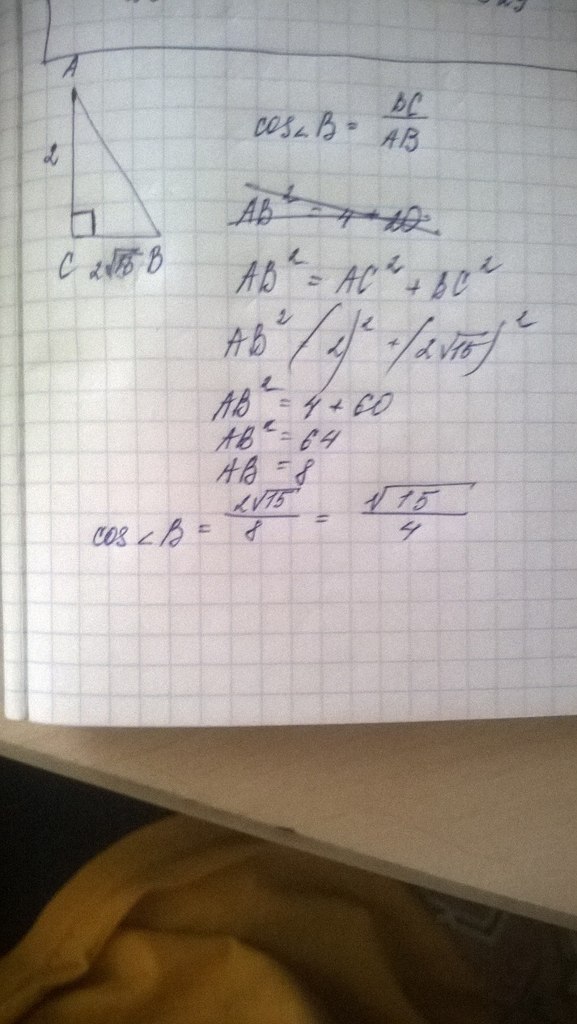 A
2
C 2√15 B
cos∠B = BC/AB
AB² = 4 + 20
AB² = AC² + BC²
AB² = (2)² + (2√15)²
AB² = 4 + 60
AB² = 64
AB = 8
cos∠B = 2√15/8 = √15/4